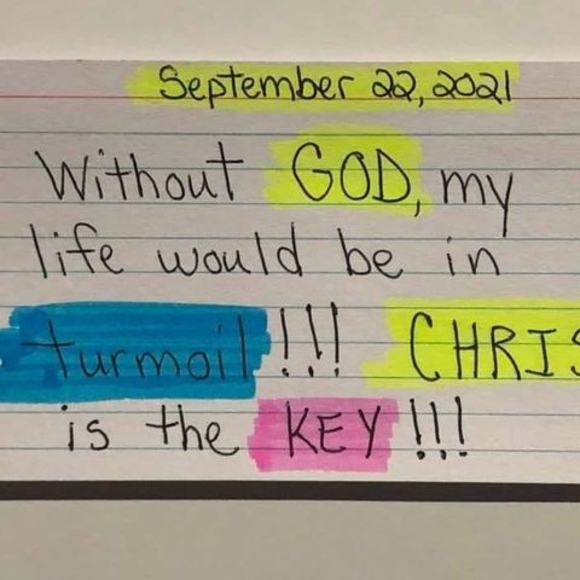 September 22, 2021
Without GOD, my
life would be in
turmoil!!! CHRIS
is the KEY!!!